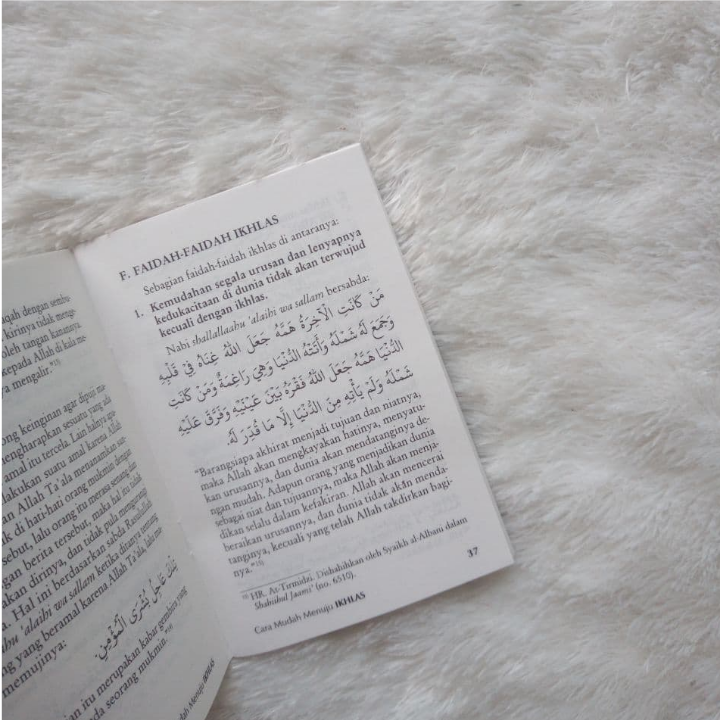 aqah dengan sembu
kirinya tidak menge-
oleh tangan kanannya.
kepada Allah di kala me-
mengalir."
ong keinginan agar dipuji ma-
mengharapkan sesuatu yang ada
amal itu tercela. Lain halnya apa-
lakukan suatu amal karena Allah
an Allah Ta'ala menanamkan san-
k di hati-hati orang mukmin dengan
sebut, lalu orang itu merasa senang dan
gan berita tersebut, maka hal itu tidak
akan dirinya, dan tidak pula mengurangi
a. Hal ini berdasarkan sabda Rasulullah
ahu 'alaihi wa sallam ketika ditanya tentang
g yang beramal karena Allah Ta'ala, lalu ma-
memujinya:
تِلْكَ عَاجِلُ بُشْرَى الْمُؤْمِنِ
an itu merupakan kabar gembira yang
ada seorang mukmin."
dah Menuju IKHLAS
F. FAIDAH-FAIDAH IKHLAS
Sebagian faidah-faidah ikhlas di antaranya:
1. Kemudahan segala urusan dan lenyapnya
kedukacitaan di dunia tidak akan terwujud
kecuali dengan ikhlas.
Nabi shallallaahu 'alaihi wa sallam bersabda:
مَنْ كَانَتِ الْآخِرَةُ هَمَّهُ جَعَلَ اللَّهُ غِنَاهُ فِيْ قَلْبِهِ
وَجَمَعَ لَهُ شَمْلَهُ وَأَتَتْهُ الدُّنْيَا وَهِيَ رَاغِمَةٌ وَمَنْ كَانَتِ
الدُّنْيَا هَمَّهُ جَعَلَ اللَّهُ فَقْرَهُ بَيْنَ عَيْنَيْهِ وَفَرَّقَ عَلَيْهِ
شَمْلَهُ وَلَمْ يَأْتِهِ مِنَ الدُّنْيَا إِلَّا مَا قُدِّرَ لَهُ.
"Barangsiapa akhirat menjadi tujuan dan niatnya,
maka Allah akan mengkayakan hatinya, menyatu-
kan urusannya, dan dunia akan mendatanginya de-
ngan mudah. Adapun orang yang menjadikan dunia
sebagai niat dan tujuannya, maka Allah akan menja-
dikan selalu dalam kefakiran. Allah akan mencerai
beraikan urusannya, dan dunia tidak akan menda-
tanginya, kecuali yang telah Allah takdirkan bagi-
nya."
HR. At-Tirmidzi. Dishahihkan oleh Syaikh al-Albani dalam
Shahiihul Jaami' (no. 6510).
Cara Mudah Menuju IKHLAS
37